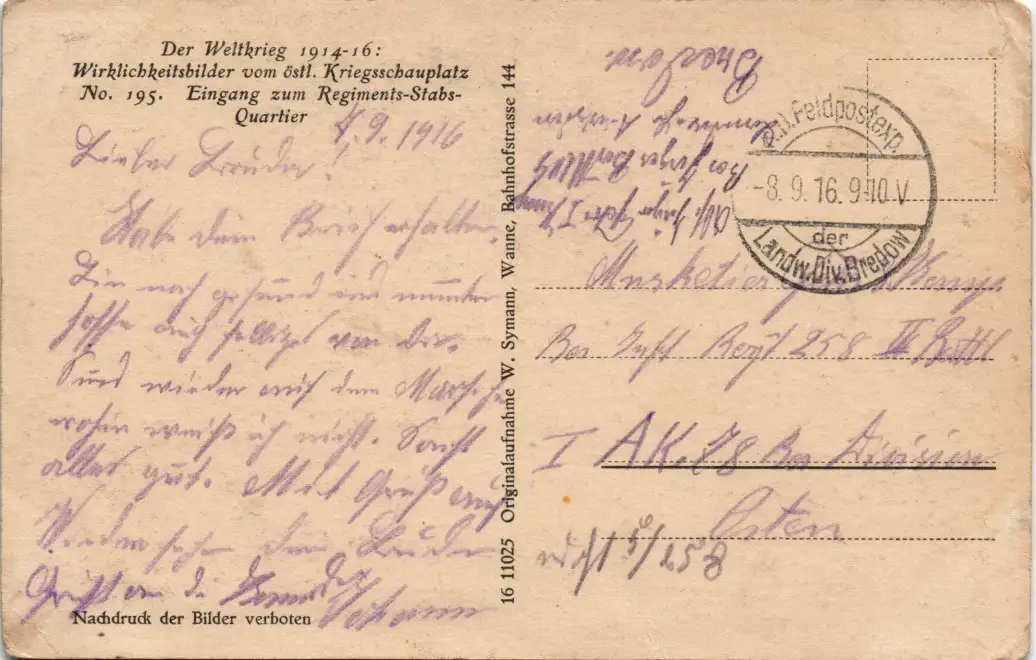 Der Weltkrieg 1914-16:
Wirklichkeitsbilder vom östl. Kriegsschauplatz
No. 195. Eingang zum Regiments-Stabs-
Quartier
8.9.1916
Lieber Bruder!
Habe dein Brief erhalten.
Bin noch gesund und munter
hoffe auch selbiges von Dir.
Sind wieder auf dem Marsche
wohin weiß ich nicht. Sonst
alles gut. Mit Gruß auf
Wiedersehen dein Bruder
Johann
Nachdruck der Bilder verboten
16 11025 Originalaufnahme W. Symann, Wanne, Bahnhofstrasse 144
Bredow
K.D.Feldpostexp.
-8.9.16.9-10V
der
Landw.Div.Bredow
Musketier
Res Inft Regt 258 II Battl
I AK. 78 Res Division
Osten
nicht 9/258